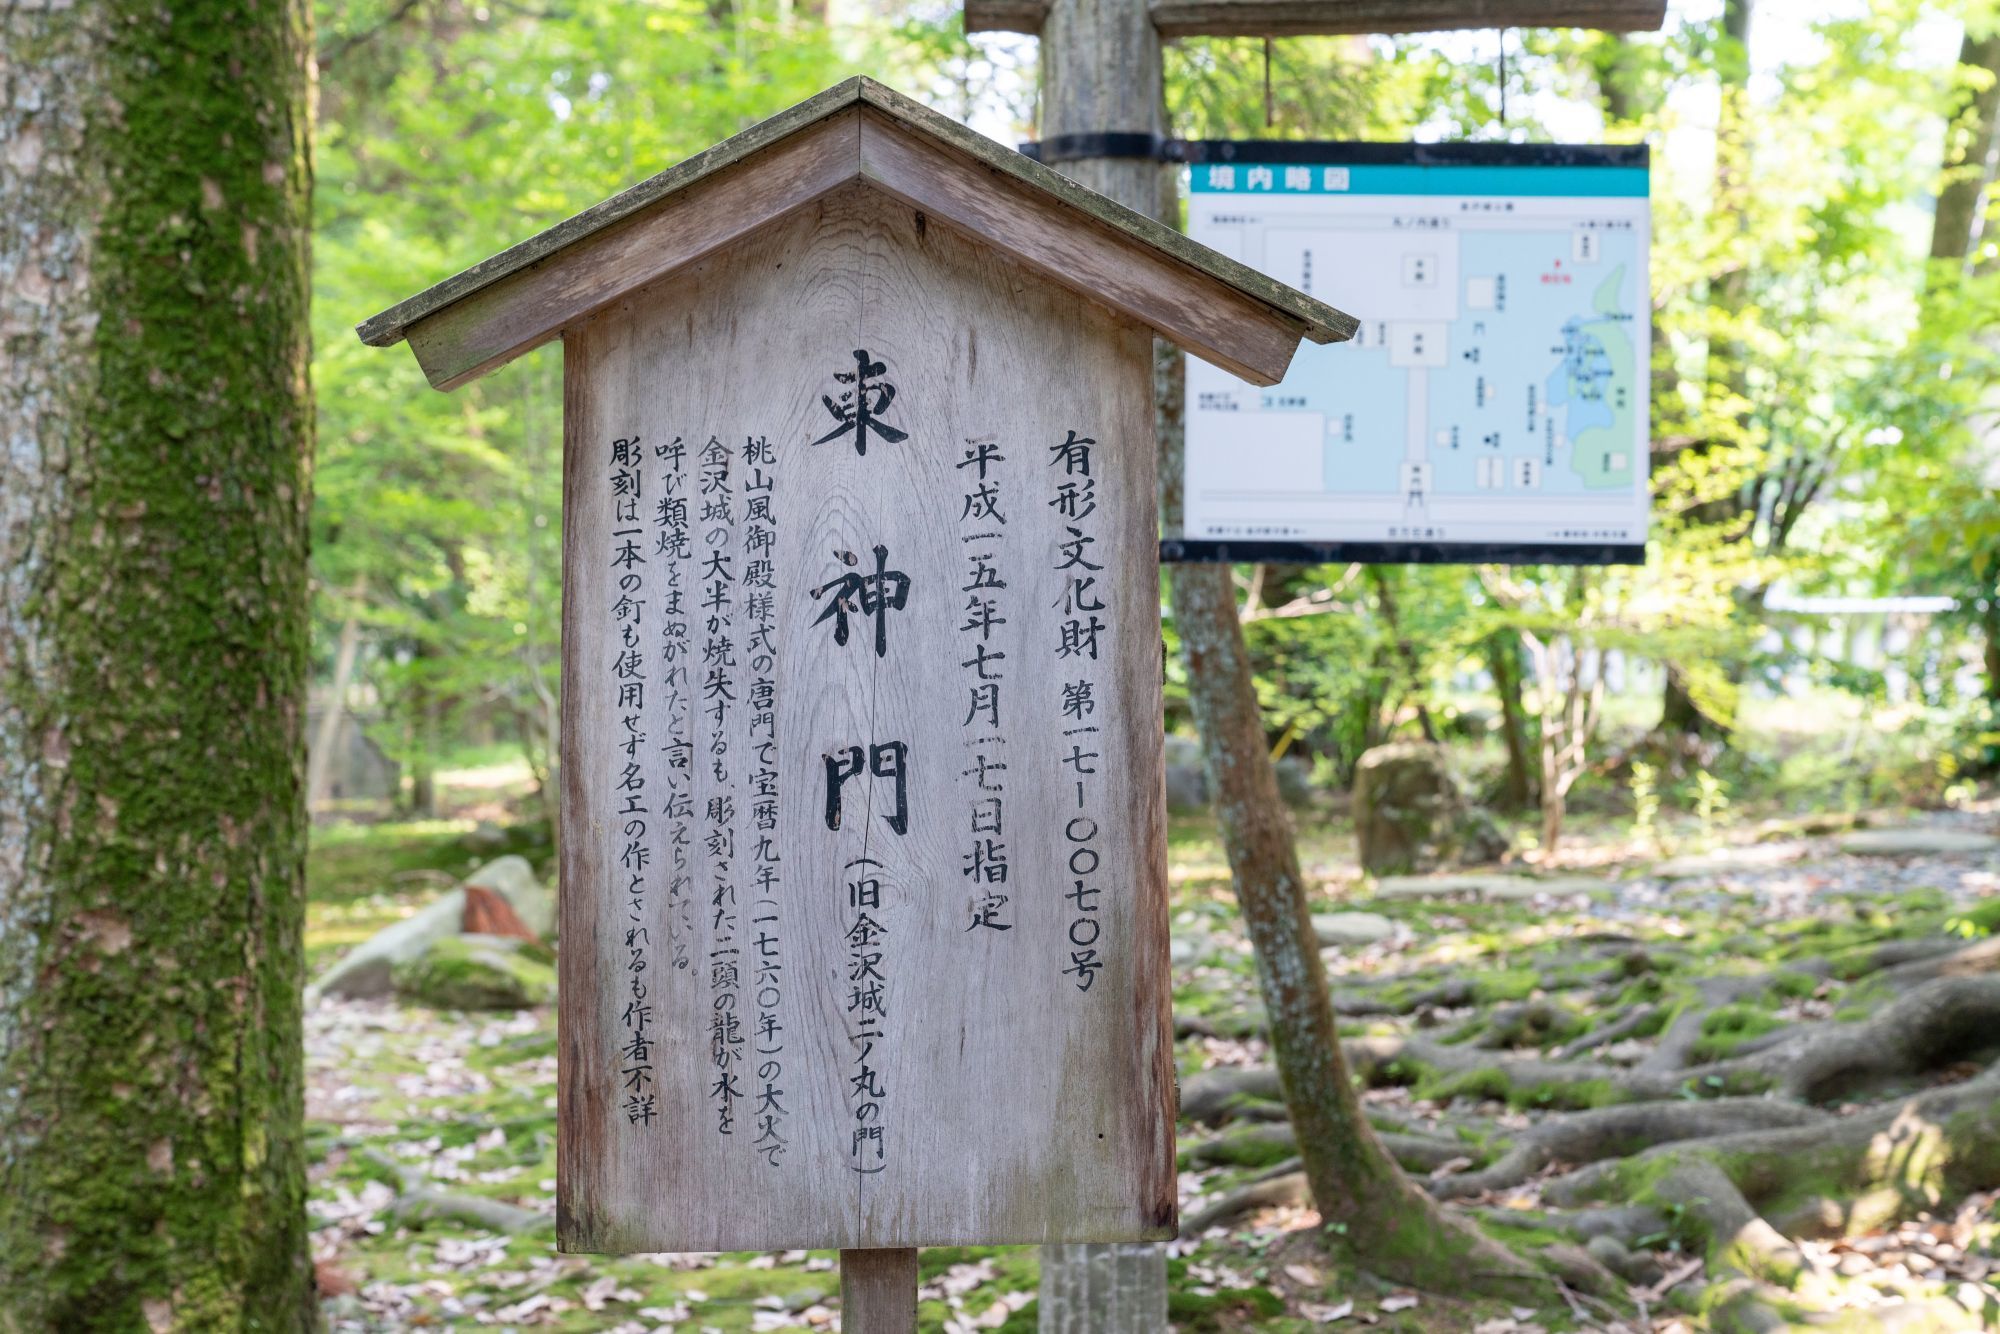 有形文化財 第一七－〇〇七〇号
平成一五年七月一七日指定
東神門（旧金沢城二ノ丸の門）
桃山風御殿様式の唐門で宝暦九年（一七六〇年）の大火で
金沢城の大半が焼失するも、彫刻された二頭の龍が水を
呼び類焼をまぬがれたと言い伝えられている。
彫刻は一本の釘も使用せず名工の作とされるも作者不詳
境内略図